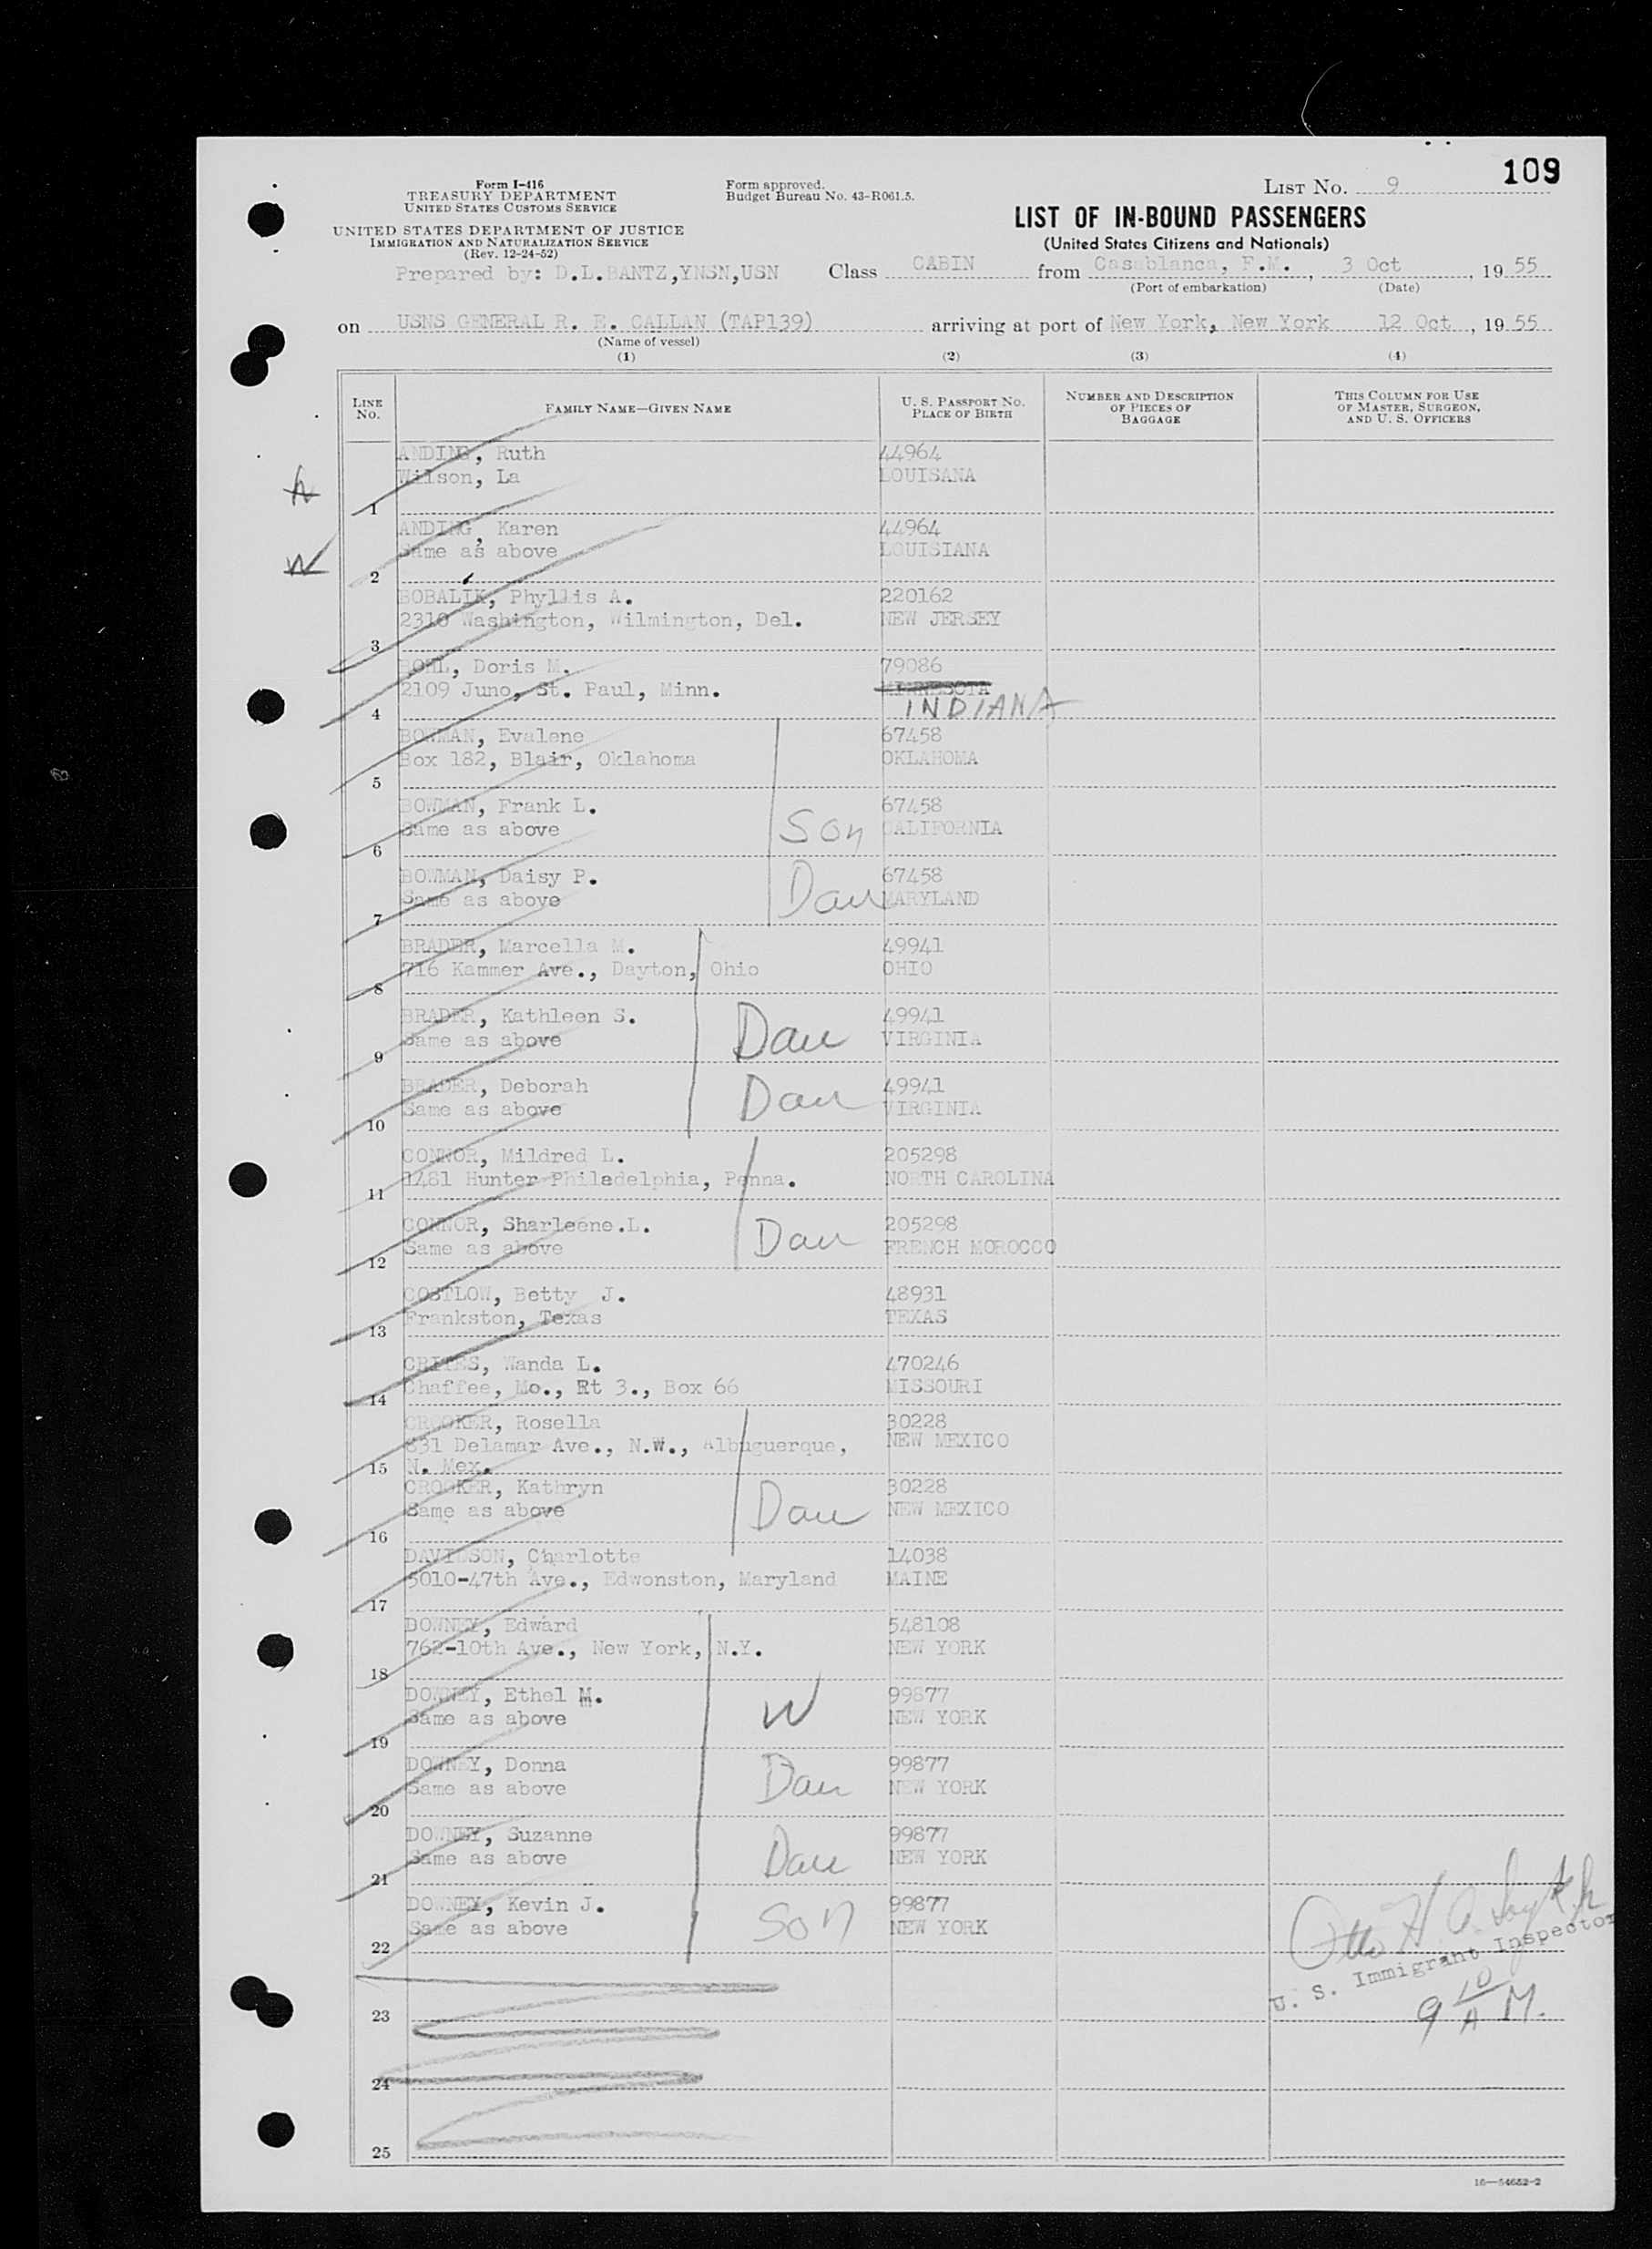 109
Form I-416
TREASURY DEPARTMENT
UNITED STATES CUSTOMS SERVICE
UNITED STATES DEPARTMENT OF JUSTICE
IMMIGRATION AND NATURALIZATION SERVICE
(Rev. 12-24-52)
Form approved.
Budget Bureau No. 43-R061.5.
LIST NO. 9
LIST OF IN-BOUND PASSENGERS
(United States Citizens and Nationals)
Prepared by: D.L.BANTZ,YNSN,USN Class CABIN from Casablanca, F.M., 3 Oct, 19 55
(Port of embarkation) (Date)
on USNS GENERAL R. E. CALLAN (TAP139) arriving at port of New York, New York 12 Oct, 19 55
(Name of vessel)
(1) (2) (3) (4)
LINE NO. FAMILY NAME—GIVEN NAME U. S. PASSPORT NO. PLACE OF BIRTH NUMBER AND DESCRIPTION OF PIECES OF BAGGAGE THIS COLUMN FOR USE OF MASTER, SURGEON, AND U. S. OFFICERS
ANDING, Ruth 44964
Wilson, La LOUISANA
1
ANDING, Karen 44964
W Same as above LOUISIANA
2
BOBALIK, Phyllis A. 220162
2310 Washington, Wilmington, Del. NEW JERSEY
3
BOHL, Doris M. 79086
2109 Juno, St. Paul, Minn. MINNESOTA
4 INDIANA
BOWMAN, Evalene 67458
Box 182, Blair, Oklahoma OKLAHOMA
5
BOWMAN, Frank L. 67458
Same as above Son CALIFORNIA
6
BOWMAN, Daisy P. 67458
Same as above Dau MARYLAND
7
BRADER, Marcella M. 49941
716 Kammer Ave., Dayton, Ohio OHIO
8
BRADER, Kathleen S. 49941
Same as above Dau VIRGINIA
9
BRADER, Deborah 49941
Same as above Dau VIRGINIA
10
CONNOR, Mildred L. 205298
1481 Hunter Philadelphia, Penna. NORTH CAROLINA
11
CONNOR, Sharleene.L. 205298
Same as above Dau FRENCH MOROCCO
12
COSTLOW, Betty J. 48931
Frankston, Texas TEXAS
13
CRITES, Wanda L. 470246
Chaffee, Mo., Rt 3., Box 66 MISSOURI
14
CROOKER, Rosella 30228
831 Delamar Ave., N.W., Albuguerque, NEW MEXICO
15 N. Mex.
CROOKER, Kathryn 30228
Same as above Dau NEW MEXICO
16
DAVIDSON, Charlotte 14038
5010-47th Ave., Edwonston, Maryland MAINE
17
DOWNEY, Edward 548108
762-10th Ave., New York, N.Y. NEW YORK
18
DOWNEY, Ethel M. 99877
Same as above W NEW YORK
19
DOWNEY, Donna 99877
Same as above Dau NEW YORK
20
DOWNEY, Suzanne 99877
Same as above Dau NEW YORK
21
DOWNEY, Kevin J. 99877
Same as above Son NEW YORK
22
Otto H.
U. S. Immigrant Inspector
23
9 10 A M.
24
25
16—54652-2